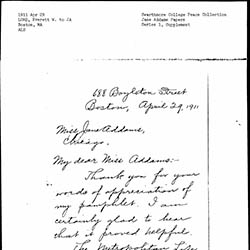 1911 Apr 29
LORD, Everett W. to JA
Boston, MA
ALS
Swarthmore College Peace Collection
Jane Addams Papers
Series 1, Supplement
688 Boylston Street
Boston, April 29, 1911
Miss Jane Addams,
Chicago.
My dear Miss Addams:-
Thank you for your
words of appreciation of
my pamphlet. I am
certainly glad to hear
that is proved helpful.
The Metropolitan Life